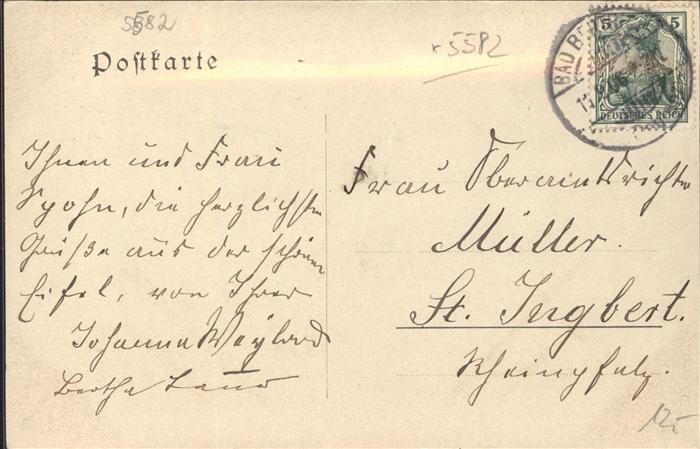 5582
r5582
Postkarte
5 5
BAD BE
DEUTSCHES REICH
Ihnen und Frau
Spohn, die herzlichsten
Grüße aus der schönen
Eifel, von Ihrer
Johanna Weyland
Bertha
Frau Oberamtsrichter
Müller.
St. Ingbert.
Rheinpfalz.
12,-